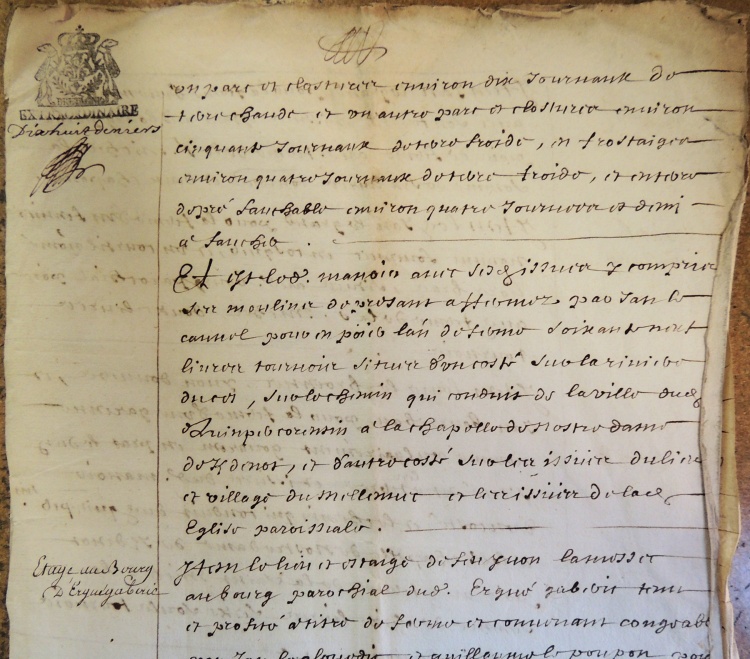 EXTRAORDINAIRE
Dixhuit deniers
un parc et closturer environ dix Journaux de
terre chaude et un autre parc et closturer environ
cinquante Journaux de terre froide, en frostaiger
environ quatre Journaux de terre froide, et en terre
de pré fauchable environ quatre Journeer et demi
a fauche.
Et est led. manoir avec ses issuer y compris
ser mouliner de présant affermez par Jan le
pour en poier l'an de ferme soixante neuf
livrer tournois situer d'un costé sur la riviere
du , sur le chemin qui conduit de la ville dud
Quinper corentin a la chapelle de nostre dame
de Kdenot, et d'autre costé sur ler issuer du lieu
et village du Mellennec et ler issuer de lad
Eglise paroissiale.
Etage au Bourg
D'Ergué gaberic
Ytem le lieu et estaige de feu yvon
au bourg parochial dud. Ergué gaberic tenu
et profité a titre de ferme et convenant congeable
par Jan et guillaume le poupon pour